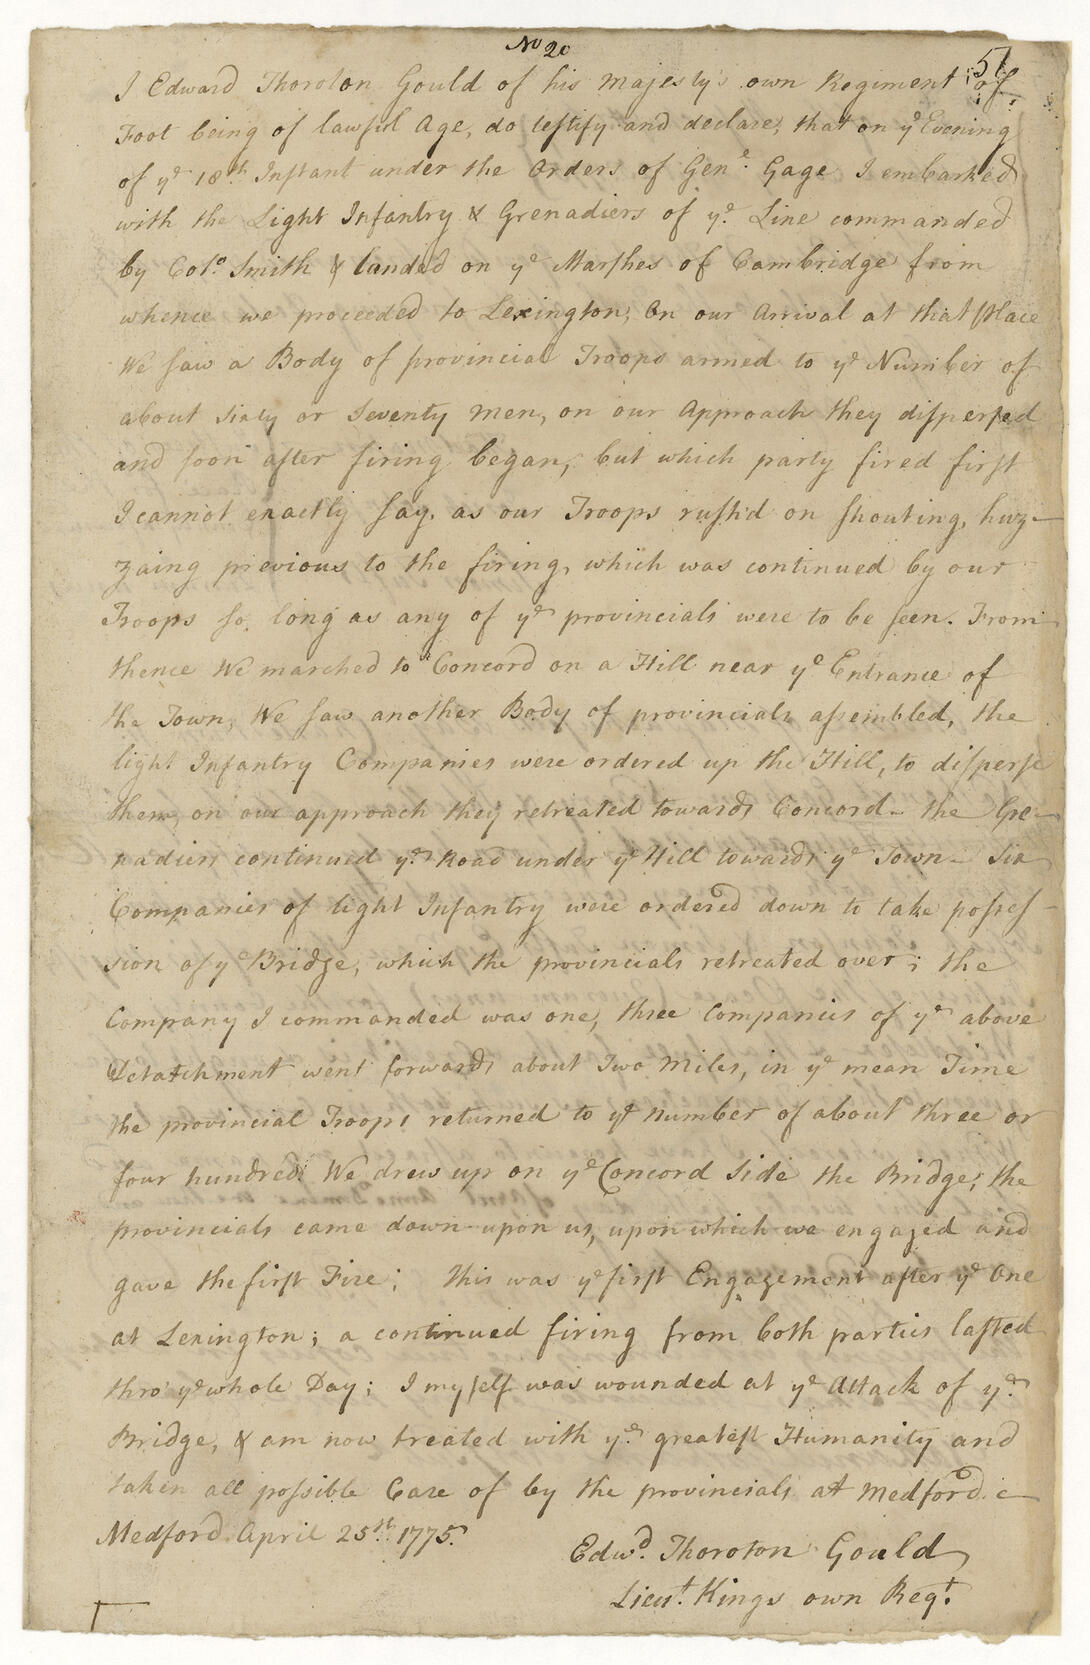 No 20
51
I Edward Thoroton Gould of his Majesty's own Regiment of
Foot being of lawful Age, do testify and declare, that on ye Evening
of ye 18th Instant under the Orders of Genl. Gage I embarked
with the Light Infantry & Grenadiers of ye Line commanded
by Colo. Smith & landed on ye Marshes of Cambridge from
whence we proceeded to Lexington; On our Arrival at that place
We saw a Body of provincial Troops armed to ye Number of
about sixty or Seventy Men, on our Approach they dispersed
and soon after firing began, but which party fired first
I cannot exactly say, as our Troops rush'd on shouting, huz-
zaing previous to the firing, which was continued by our
Troops so long as any of ye provincials were to be seen. From
thence We marched to Concord on a Hill near ye Entrance of
the Town, We saw another Body of provincials assembled, the
light Infantry Companies were ordered up the Hill, to disperse
them, on our approach they retreated towards Concord - the Gre-
nadiers continued ye Road under ye Hill towards ye Town - Six
Companies of light Infantry were ordered down to take posses-
sion of ye Bridge, which the provincials retreated over; the
Company I commanded was one, three Companies of ye above
Detatchment went forwards about Two Miles, in ye mean Time
the provincial Troops returned to ye number of about three or
four hundred: We drew up on ye Concord Side the Bridge; the
provincials came down upon us, upon which we engaged and
gave the first Fire; This was ye first Engagement after ye One
at Lexington; a continued firing from both parties lasted
thro' ye whole Day; I myself was wounded at ye Attack of ye
Bridge, & am now treated with ye greatest Humanity and
taken all possible Care of by the provincials at Medford.
Medford April 25th 1775.
Edwd. Thoroton Gould
Lieut. Kings own Regt.